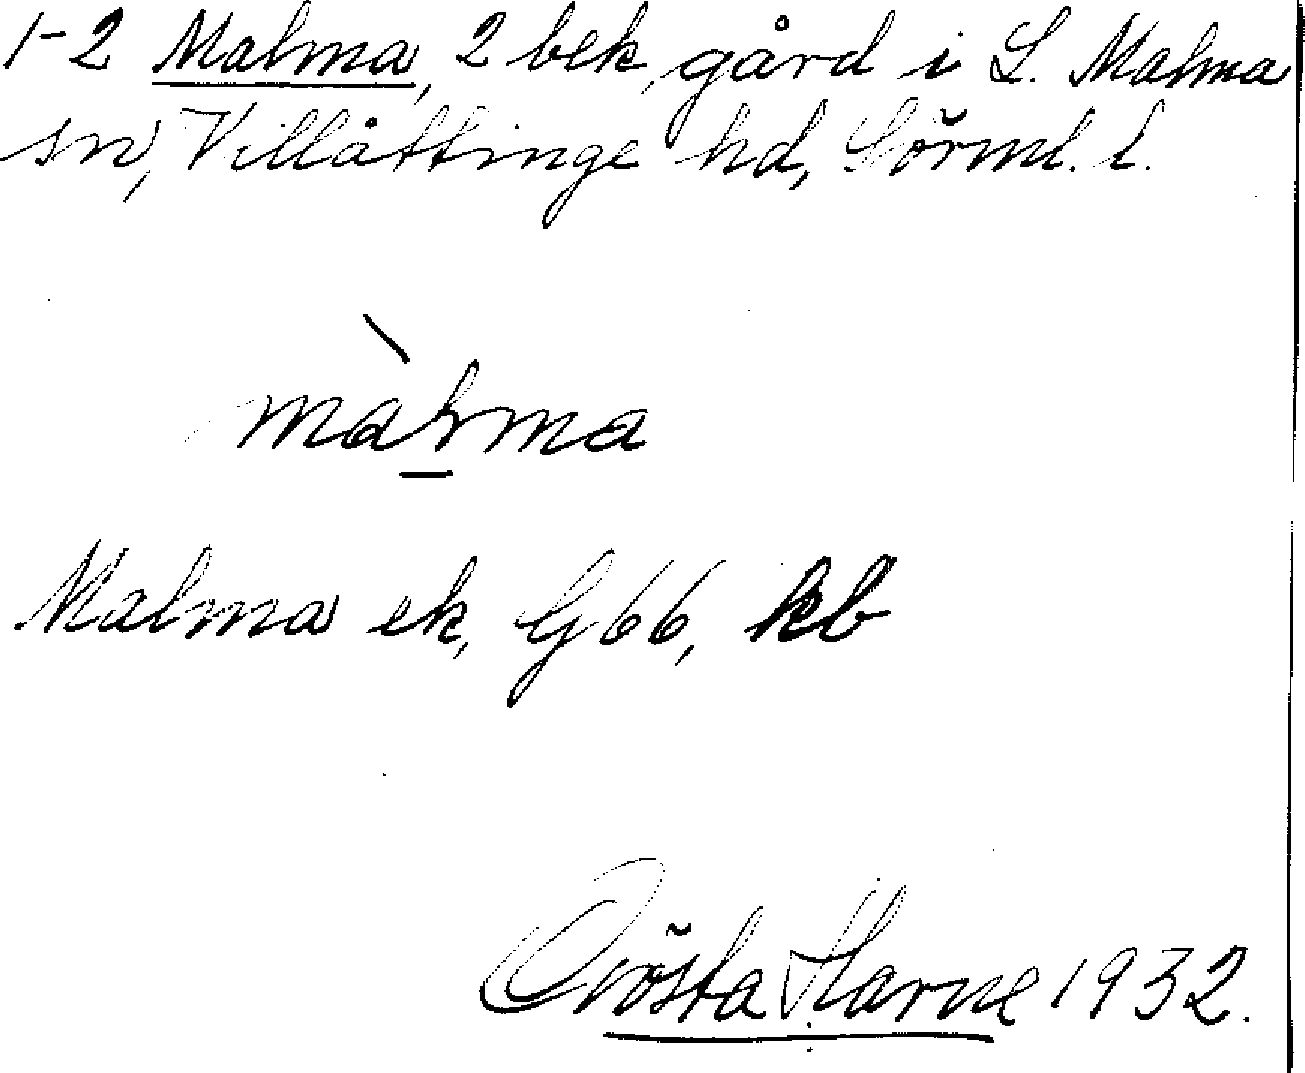 1-2 Malma, 2 bek, gård i L. Malma
sn, Villåttinge hd, Sörml. l.
màlma
Malma ek, G 66, kb
Gösta Harne 1932.